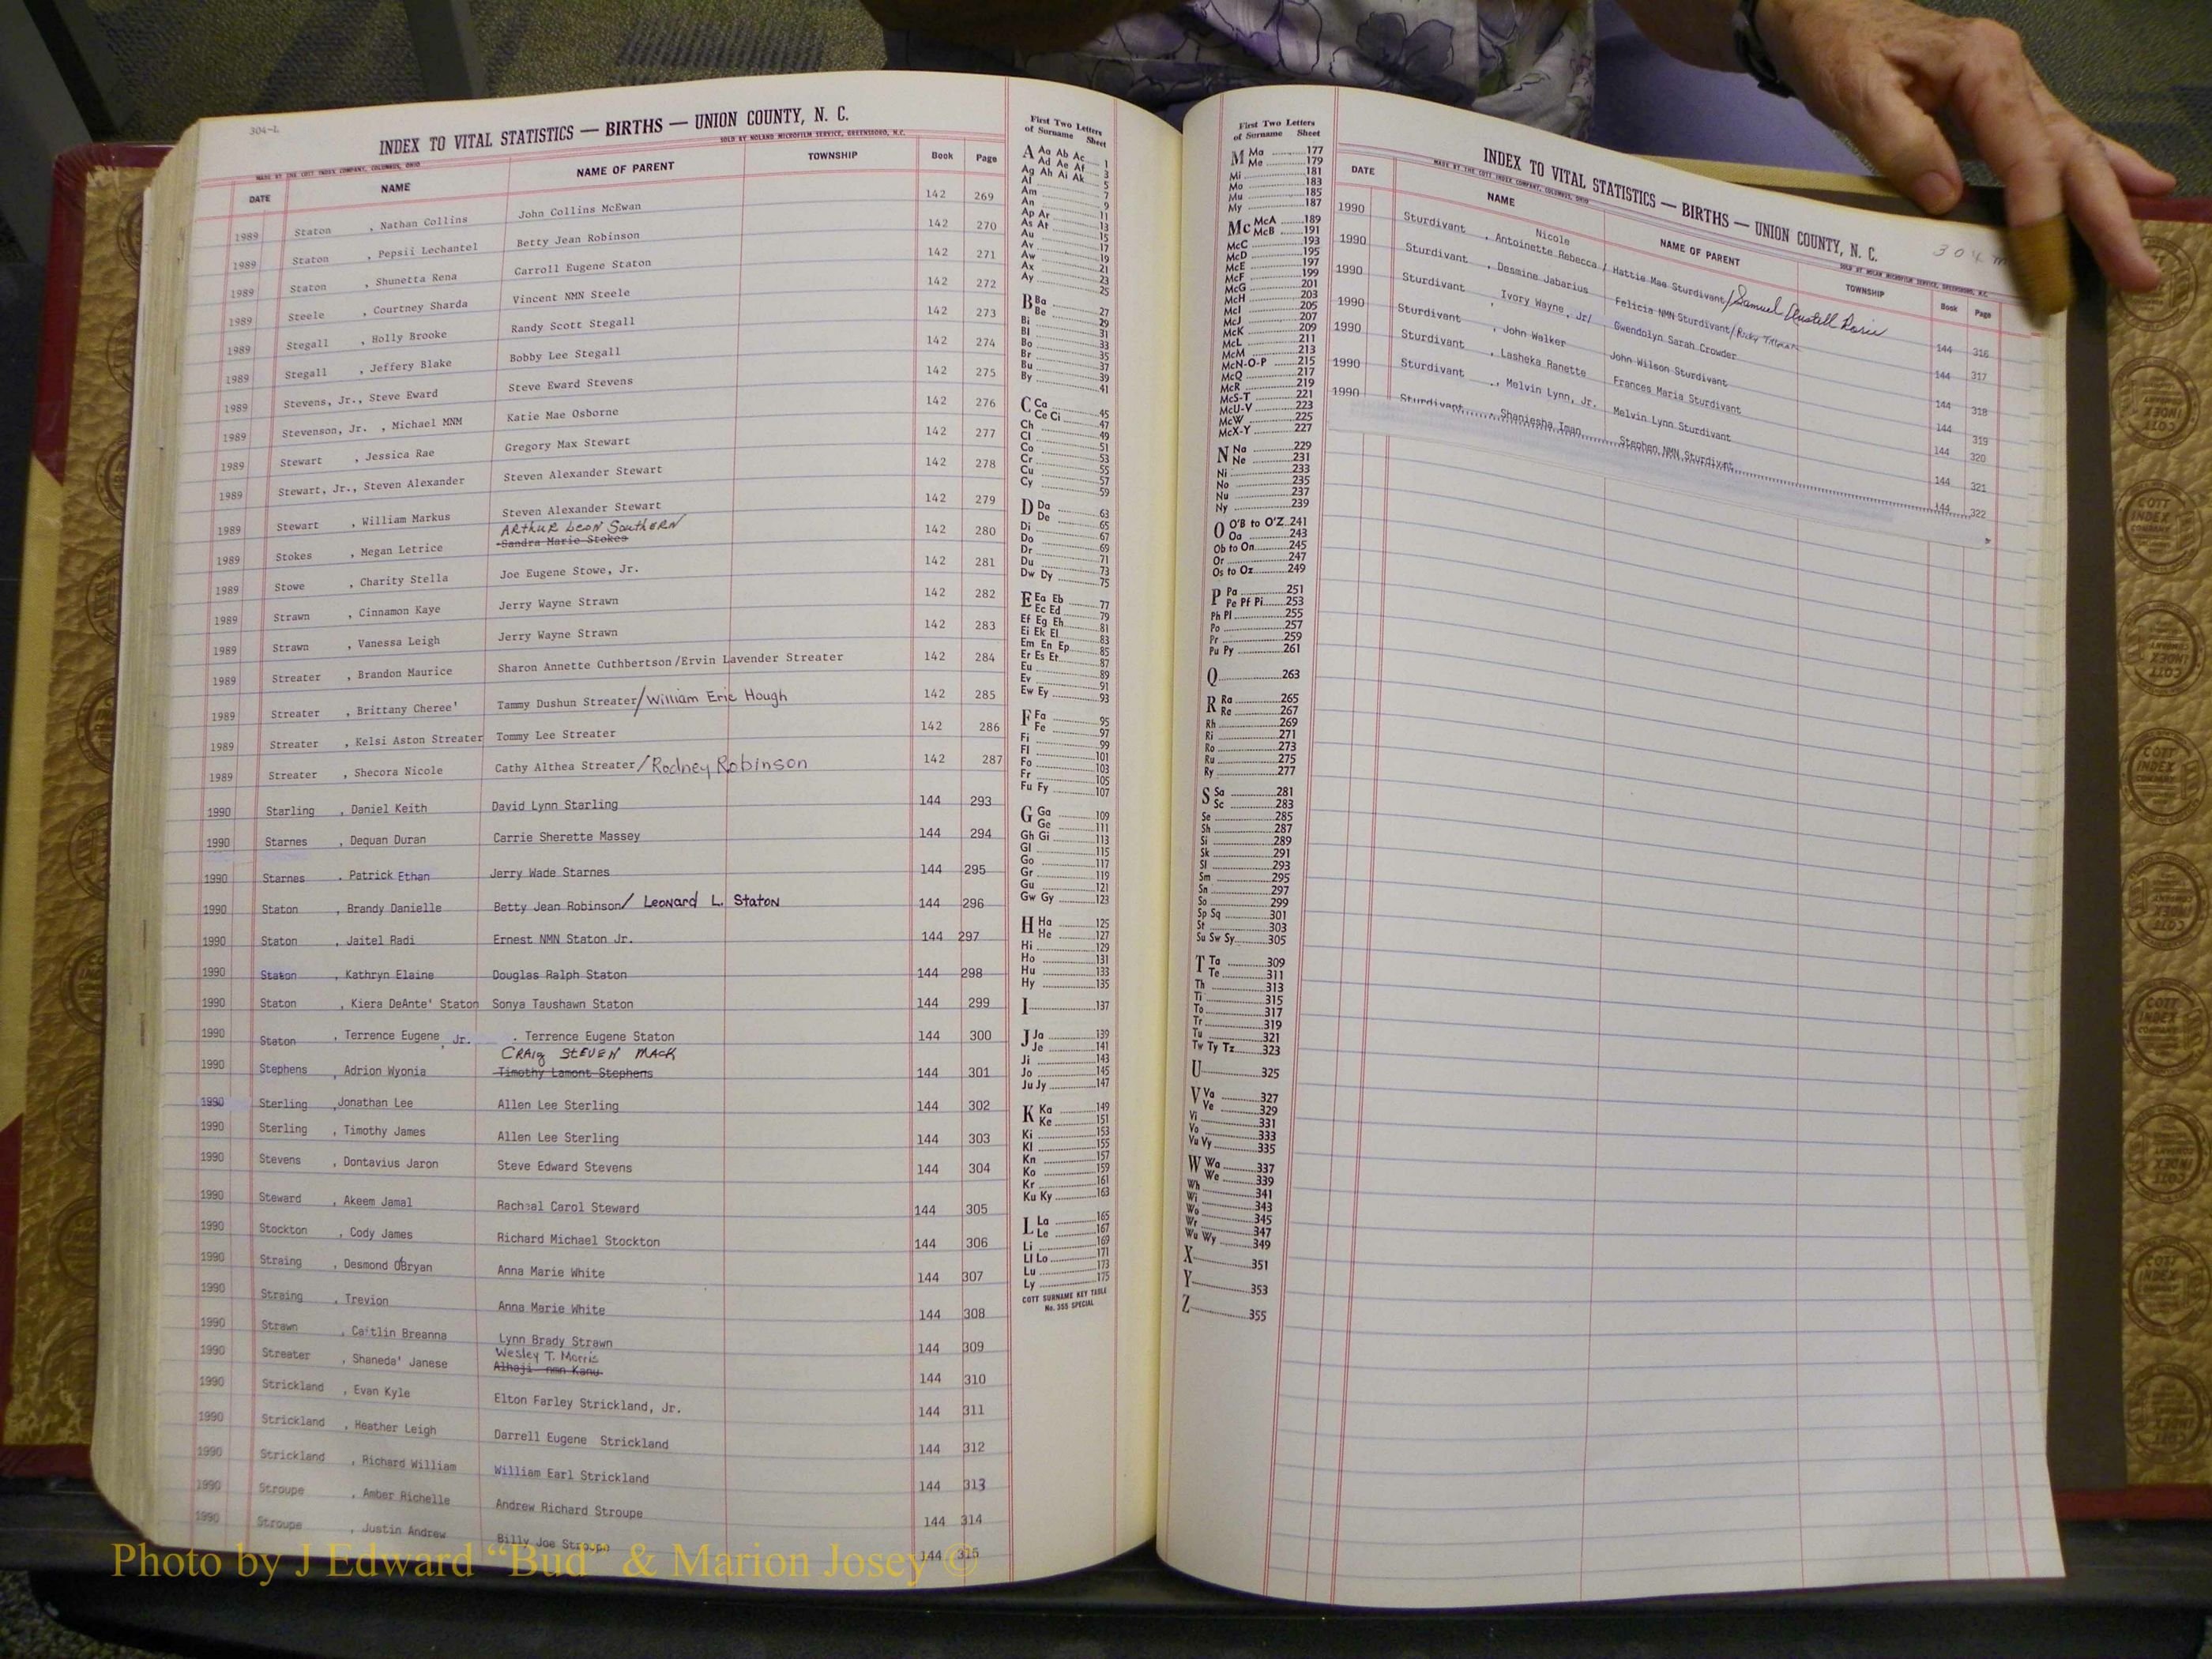 304-L
INDEX TO VITAL STATISTICS — BIRTHS — UNION COUNTY, N. C.
MADE BY THE COTT INDEX COMPANY, COLUMBUS, OHIO SOLD BY NOLAND MICROFILM SERVICE, GREENSBORO, N.C.
DATE NAME NAME OF PARENT TOWNSHIP Book Page
1989 Staton , Nathan Collins John Collins McEwan 142 269
1989 Staton , Pepsii Lechantel Betty Jean Robinson 142 270
1989 Staton , Shunetta Rena Carroll Eugene Staton 142 271
1989 Steele , Courtney Sharda Vincent NMN Steele 142 272
1989 Stegall , Holly Brooke Randy Scott Stegall 142 273
1989 Stegall , Jeffery Blake Bobby Lee Stegall 142 274
1989 Stevens, Jr., Steve Eward Steve Eward Stevens 142 275
1989 Stevenson, Jr. , Michael MNM Katie Mae Osborne 142 276
1989 Stewart , Jessica Rae Gregory Max Stewart 142 277
1989 Stewart, Jr., Steven Alexander Steven Alexander Stewart 142 278
1989 Stewart , William Markus Steven Alexander Stewart 142 279
ARthur Leon SouthERN
1989 Stokes , Megan Letrice Sandra Marie Stokes 142 280
1989 Stowe , Charity Stella Joe Eugene Stowe, Jr. 142 281
1989 Strawn , Cinnamon Kaye Jerry Wayne Strawn 142 282
1989 Strawn , Vanessa Leigh Jerry Wayne Strawn 142 283
1989 Streater , Brandon Maurice Sharon Annette Cuthbertson/Ervin Lavender Streater 142 284
1989 Streater , Brittany Cheree' Tammy Dushun Streater/William Eric Hough 142 285
1989 Streater , Kelsi Aston Streater Tommy Lee Streater 142 286
1989 Streater , Shecora Nicole Cathy Althea Streater/Rodney Robinson 142 287
1990 Starling , Daniel Keith David Lynn Starling 144 293
1990 Starnes , Dequan Duran Carrie Sherette Massey 144 294
1990 Starnes . Patrick Ethan Jerry Wade Starnes 144 295
1990 Staton , Brandy Danielle Betty Jean Robinson/ Leonard L. Staton 144 296
1990 Staton , Jaitel Radi Ernest NMN Staton Jr. 144 297
1990 Staton , Kathryn Elaine Douglas Ralph Staton 144 298
1990 Staton , Kiera DeAnte' Staton Sonya Taushawn Staton 144 299
1990 Staton , Terrence Eugene , Jr. . Terrence Eugene Staton 144 300
CRAig STEVEN MACK
1990 Stephens , Adrion Wyonia Timothy Lamont Stephens 144 301
1990 Sterling ,Jonathan Lee Allen Lee Sterling 144 302
1990 Sterling , Timothy James Allen Lee Sterling 144 303
1990 Stevens , Dontavius Jaron Steve Edward Stevens 144 304
1990 Steward , Akeem Jamal Racheal Carol Steward 144 305
1990 Stockton , Cody James Richard Michael Stockton 144 306
1990 Straing , Desmond O'Bryan Anna Marie White 144 307
1990 Straing , Trevion Anna Marie White 144 308
1990 Strawn , Caitlin Breanna Lynn Brady Strawn 144 309
Wesley T. Morris
1990 Streater , Shaneda' Janese Alhaji nmn Kanu 144 310
1990 Strickland , Evan Kyle Elton Farley Strickland, Jr. 144 311
1990 Strickland , Heather Leigh Darrell Eugene Strickland 144 312
1990 Strickland , Richard William William Earl Strickland 144 313
1990 Stroupe , Amber Richelle Andrew Richard Stroupe 144 314
1990 Stroupe , Justin Andrew Billy Joe Stroupe 144 315
First Two Letters
of Surname Sheet
A Aa Ab Ac 1
Ad Ae Af 3
Ag Ah Ai Ak 5
Al 7
Am 9
An 11
Ap Ar 13
As At 15
Au 17
Av 19
Aw 21
Ax 23
Ay 25
B Ba 27
Be 29
Bi 31
Bl 33
Bo 35
Br 37
Bu 39
By 41
C Ca 45
Ce Ci 47
Ch 49
Cl 51
Co 53
Cr 55
Cu 57
Cy 59
D Da 63
De 65
Di 67
Do 69
Dr 71
Du 73
Dw Dy 75
E Ea Eb 77
Ec Ed 79
Ef Eg Eh 81
Ei Ek El 83
Em En Ep 85
Er Es Et 87
Eu 89
Ev 91
Ew Ey 93
F Fa 95
Fe 97
Fi 99
Fl 101
Fo 103
Fr 105
Fu Fy 107
G Ga 109
Ge 111
Gh Gi 113
Gl 115
Go 117
Gr 119
Gu 121
Gw Gy 123
H Ha 125
He 127
Hi 129
Ho 131
Hu 133
Hy 135
I 137
J Ja 139
Je 141
Ji 143
Jo 145
Ju Jy 147
K Ka 149
Ke 151
Ki 153
Kl 155
Kn 157
Ko 159
Kr 161
Ku Ky 163
L La 165
Le 167
Li 169
Ll Lo 171
Lu 173
Ly 175
COTT SURNAME KEY TABLE
No. 355 SPECIAL
First Two Letters
of Surname Sheet
M Ma 177
Me 179
Mi 181
Mo 183
Mu 185
My 187
Mc McA 189
McB 191
McC 193
McD 195
McE 197
McF 199
McG 201
McH 203
McI 205
McJ 207
McK 209
McL 211
McM 213
McN-O-P 215
McQ 217
McR 219
McS-T 221
McU-V 223
McW 225
McX-Y 227
N Na 229
Ne 231
Ni 233
No 235
Nu 237
Ny 239
O O'B to O'Z 241
Oa 243
Ob to On 245
Or 247
Os to Oz 249
P Pa 251
Pe Pf Pi 253
Ph Pl 255
Po 257
Pr 259
Pu Py 261
Q 263
R Ra 265
Re 267
Rh 269
Ri 271
Ro 273
Ru 275
Ry 277
S Sa 281
Sc 283
Se 285
Sh 287
Si 289
Sk 291
Sl 293
Sm 295
Sn 297
So 299
Sp Sq 301
St 303
Su Sw Sy 305
T Ta 309
Te 311
Th 313
Ti 315
To 317
Tr 319
Tu 321
Tw Ty Tz 323
U 325
V Va 327
Ve 329
Vi 331
Vo 333
Vu Vy 335
W Wa 337
We 339
Wh 341
Wi 343
Wo 345
Wr 347
Wu Wy 349
X 351
Y 353
Z 355
304 m
INDEX TO VITAL STATISTICS — BIRTHS — UNION COUNTY, N. C.
MADE BY THE COTT INDEX COMPANY, COLUMBUS, OHIO SOLD BY NOLAN MICROFILM SERVICE, GREENSBORO, N.C.
DATE NAME NAME OF PARENT TOWNSHIP Book Page
Nicole
1990 Sturdivant , Antoinette Rebecca / Hattie Mae Sturdivant/Samuel 144 316
1990 Sturdivant , Desmine Jabarius Felicia NMN Sturdivant/Ricky 144 317
1990 Sturdivant , Ivory Wayne , Jr/ Gwendolyn Sarah Crowder 144 318
1990 Sturdivant , John Walker John Wilson Sturdivant 144 319
1990 Sturdivant , Lasheka Ranette Frances Maria Sturdivant 144 320
1990 Sturdivant ., Melvin Lynn, Jr. Melvin Lynn Sturdivant 144 321
1990 Sturdivant , Shaniesha Iman Stephen NMN Sturdivant 144 322
Photo by J Edward “Bud” & Marion Josey ©
COTT
INDEX
COMPANY